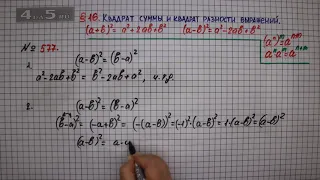 4...5
§ 16. Квадрат суммы и квадрат разности выражений.
(a+b)² = a²+2ab+b² (a-b)² = a²-2ab+b²
(aᵐ)ⁿ = aᵐⁿ
aⁿaᵐ = aⁿ⁺ᵐ
№ 577.
1. (a-b)² = (b-a)²
a²-2ab+b² = b²-2ab+a², ч.т.д.
2. (a-b)² = (b-a)²
(b-a)² = (-a+b)² = (-(a-b))² = (-1)²·(a-b)² = 1·(a-b)² = (a-b)²
(a-b)² = a-